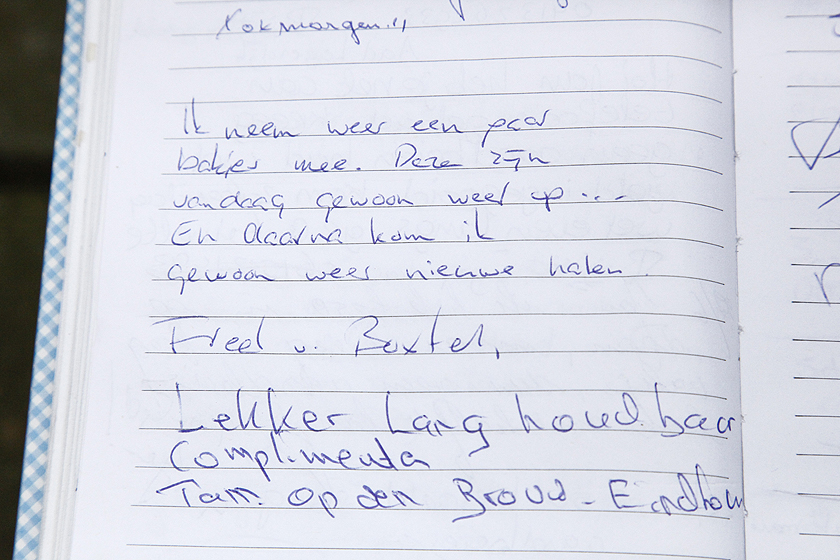 Ik neem weer een paar
bakjes mee. Deze zijn
vandaag gewoon weer op ...
En daarna kom ik
gewoon weer nieuwe halen.
Fred v. Boxtel,
Lekker Lang houdbaar
Complimenta
op den Eindhov